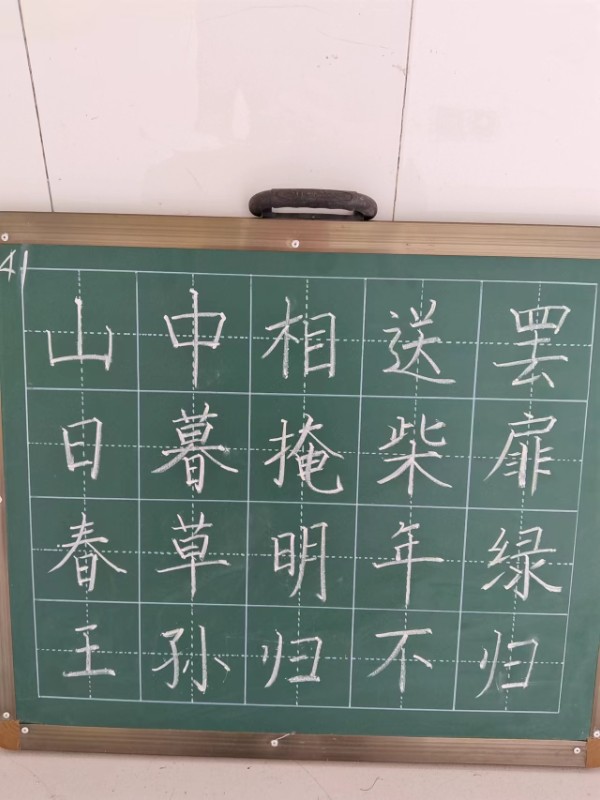 41
山中相送罢
日暮掩柴扉
春草明年绿
王孙归不归